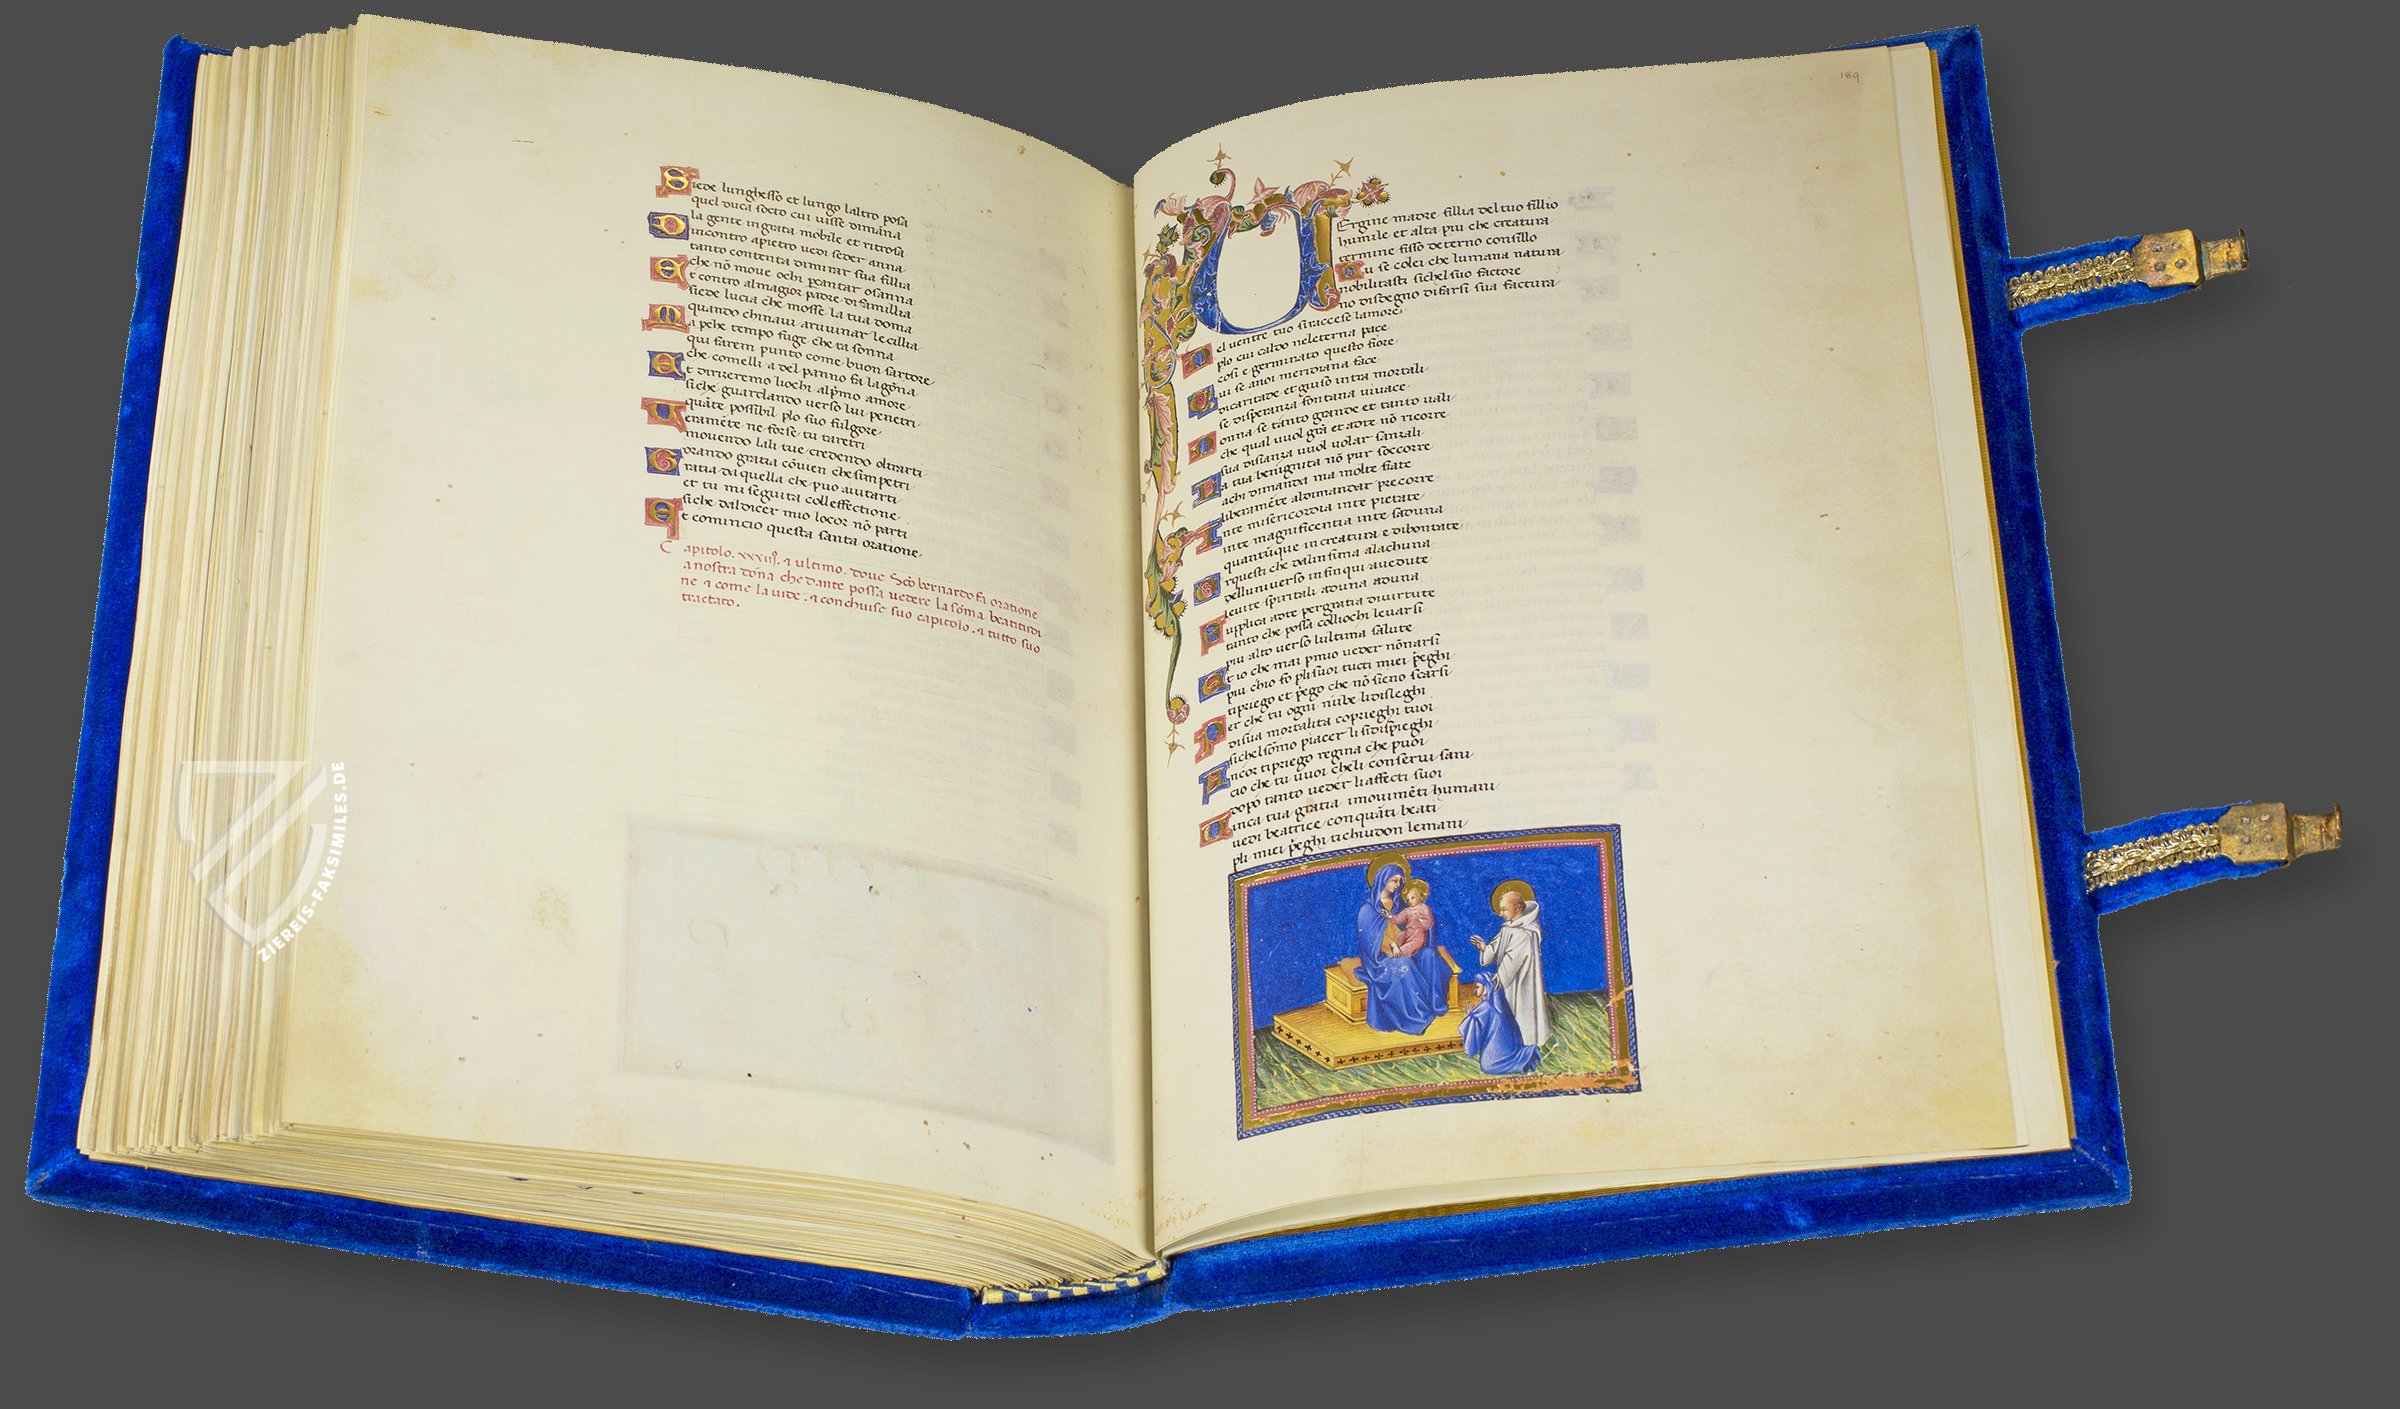 Siede lunghesso et lungo laltro posa
quel duca socto cui uisse dimana
la gente ingrata mobile et ritrosa
Dincontro apietro uedi seder anna
tanto contenta dimirar sua fillia
che nō moue ochi p cantar osanna
Et contro almagior padre di familllia
siede lucia che mosse la tua dona
quando chinaui aruuinar le cillia
Ma pche tempo fuge che ta sonna
qui farem punto come buon sartore
che comelli a del panno fa la gōna
Et dirizeremo liochi alpmo amore
siche guardando uerso lui penetri
quāte possibil plo suo fulgore
Veramēte ne forse tu taretri
mouendo lali tue credendo oltrarti
orando gratia cōuien che simpetri
Gratia da quella che puo aiutarti
et tu mi seguita colleffectione
siche daldicer mio locor nō parti
Et comincio questa santa oratione
Capitolo. xxxiij. et ultimo. doue Scō bernardo fa oratione
a nostra dōna che dante possa uedere la sōma beatitudi
ne et come la uide. et conchiuse suo capitolo. et tutto suo
tractato.
189
VErgine madre fillia deltuo fillio
humile et alta piu che creatura
termine fisso de terno consillo
Tu se colei che lumana natura
nobilitasti sichel suo factore
no disdegno difarsi sua factura
Nel uentre tuo siraccese lamore
plo cui caldo neleterna pace
cosi e germinato questo fiore
Qui se anoi meridiana face
dicaritade et giuso intra mortali
se disperanza fontana uiuace
Donna se tanto grande et tanto uali
che qual uuol grā et adte nō ricorre
sua disianza uuol uolar sanzali
La tua benignita nō pur soccorre
achi dimanda ma molte fiate
liberamēte aldimandar precorre
Inte misericordia inte pietate
inte magnificentia inte saduna
quantūque in creatura e dibontate
Or questi che dalinfima alachuna
delluniuerso infin qui a uedute
leuite spiritali aduna aduna
Supplica adte pergratia diuirtute
tanto che possa colliochi leuarsi
piu alto uerso lultima salute
Et io che mai pmio ueder nōnarsi
piu chio fo pli suoi tucti miei pēghi
tipriego et pēgo che nō sieno scarsi
Per che tu ogni nube lidisleghi
disua mortalita coprieghi tuoi
sichelsōmo piacer li sidispieghi
Ancor tipriego regina che puoi
cio che tu uuoi cheli conserui sani
dopo tanto ueder liaffecti suoi
Vinca tua gratia imouimēti humani
uedi beatrice con quāti beati
pli miei pēghi tichiudon lemani
ZIEREIS-FAKSIMILES.DE